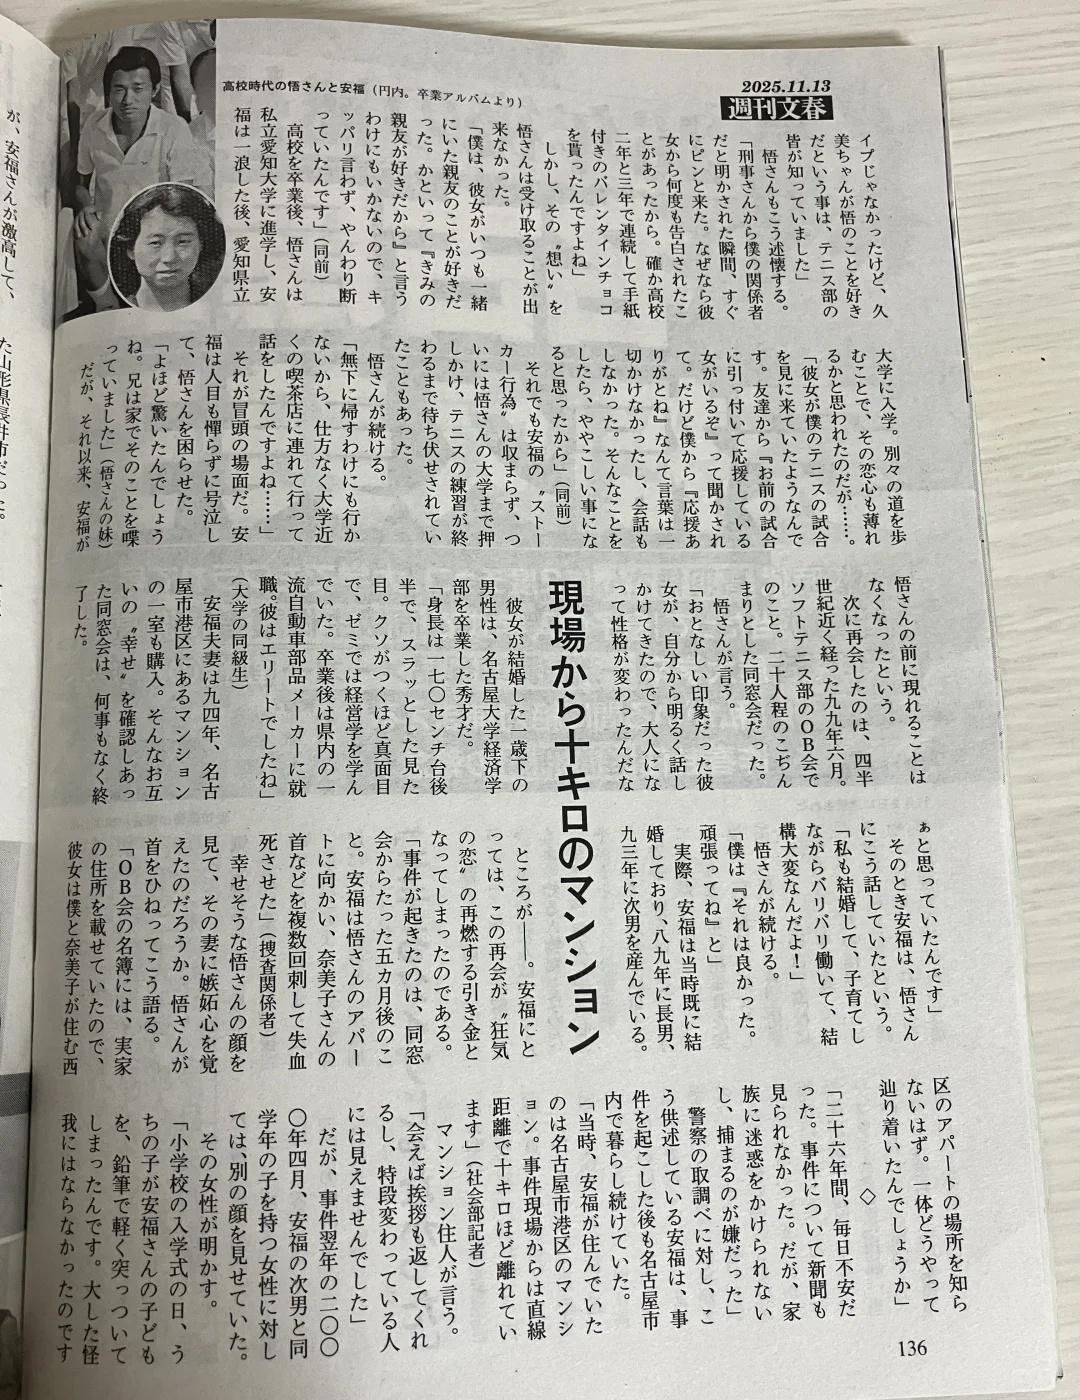 2025.11.13
週刊文春
高校時代の悟さんと安福（円内。卒業アルバムより）
イプじゃなかったけど、久
美ちゃんが悟のことを好き
だという事は、テニス部の
皆が知っていました」
悟さんもこう述懐する。
「刑事さんから僕の関係者
だと明かされた瞬間、すぐ
にピンと来た。なぜなら彼
女から何度も告白されたこ
とがあったから。確か高校
二年と三年で連続して手紙
付きのバレンタインチョコ
を貰ったんですよね」
しかし、その〝想い〟を
悟さんは受け取ることが出
来なかった。
「僕は、彼女がいつも一緒
にいた親友のことが好きだ
った。かといって『きみの
親友が好きだから』と言う
わけにもいかないので、キ
ッパリ言わず、やんわり断
っていたんです」（同前）
高校を卒業後、悟さんは
私立愛知大学に進学し、安
福は一浪した後、愛知県立
大学に入学。別々の道を歩
むことで、その恋心も薄れ
るかと思われたのだが……。
「彼女が僕のテニスの試合
を見に来ていたようなんで
す。友達から『お前の試合
に引っ付いて応援している
女がいるぞ』って聞かされ
て。だけど僕から『応援あ
りがとね』なんて言葉は一
切かけなかったし、会話も
しなかった。そんなことを
したら、ややこしい事にな
ると思ったから」（同前）
それでも安福の〝ストー
カー行為〟は収まらず、つ
いには悟さんの大学まで押
しかけ、テニスの練習が終
わるまで待ち伏せされてい
たこともあった。
悟さんが続ける。
「無下に帰すわけにも行か
ないから、仕方なく大学近
くの喫茶店に連れて行って
話をしたんですよね……」
それが冒頭の場面だ。安
福は人目も憚らずに号泣し
て、悟さんを困らせた。
「よほど驚いたんでしょう
ね。兄は家でそのことを喋
っていました」（悟さんの妹）
だが、それ以来、安福が
悟さんの前に現れることは
なくなったという。
次に再会したのは、四半
世紀近く経った九九年六月。
ソフトテニス部のOB会で
のこと。二十人程のこぢん
まりとした同窓会だった。
悟さんが言う。
「おとなしい印象だった彼
女が、自分から明るく話し
かけてきたので、大人にな
って性格が変わったんだな
現場から十キロのマンション
彼女が結婚した一歳下の
男性は、名古屋大学経済学
部を卒業した秀才だ。
「身長は一七〇センチ台後
半で、スラッとした見た
目。クソがつくほど真面目
で、ゼミでは経営学を学ん
でいた。卒業後は県内の一
流自動車部品メーカーに就
職。彼はエリートでしたね」
（大学の同級生）
安福夫妻は九四年、名古
屋市港区にあるマンション
の一室も購入。そんなお互
いの〝幸せ〟を確認しあっ
た同窓会は、何事もなく終
了した。
ぁと思っていたんです」
そのとき安福は、悟さん
にこう話していたという。
「私も結婚して、子育てし
ながらバリバリ働いて、結
構大変なんだよ！」
悟さんが続ける。
「僕は『それは良かった。
頑張ってね』と」
実際、安福は当時既に結
婚しており、八九年に長男、
九三年に次男を産んでいる。
ところが――。安福にと
っては、この再会が〝狂気
の恋〟の再燃する引き金と
なってしまったのである。
「事件が起きたのは、同窓
会からたった五カ月後のこ
と。安福は悟さんのアパー
トに向かい、奈美子さんの
首などを複数回刺して失血
死させた」（捜査関係者）
幸せそうな悟さんの顔を
見て、その妻に嫉妬心を覚
えたのだろうか。悟さんが
首をひねってこう語る。
「OB会の名簿には、実家
の住所を載せていたので、
彼女は僕と奈美子が住む西
区のアパートの場所を知ら
ないはず。一体どうやって
辿り着いたんでしょうか」
◇
「二十六年間、毎日不安だ
った。事件について新聞も
見られなかった。だが、家
族に迷惑をかけられない
し、捕まるのが嫌だった」
警察の取調べに対し、こ
う供述している安福は、事
件を起こした後も名古屋市
内で暮らし続けていた。
「当時、安福が住んでいた
のは名古屋市港区のマンシ
ョン。事件現場からは直線
距離で十キロほど離れてい
ます」（社会部記者）
マンション住人が言う。
「会えば挨拶も返してくれ
るし、特段変わっている人
には見えませんでした」
だが、事件翌年の二〇〇
〇年四月、安福の次男と同
学年の子を持つ女性に対し
ては、別の顔を見せていた。
その女性が明かす。
「小学校の入学式の日、う
ちの子が安福さんの子ども
を、鉛筆で軽く突っついて
しまったんです。大した怪
我にはならなかったのです
136
が、安福さんが激高して、